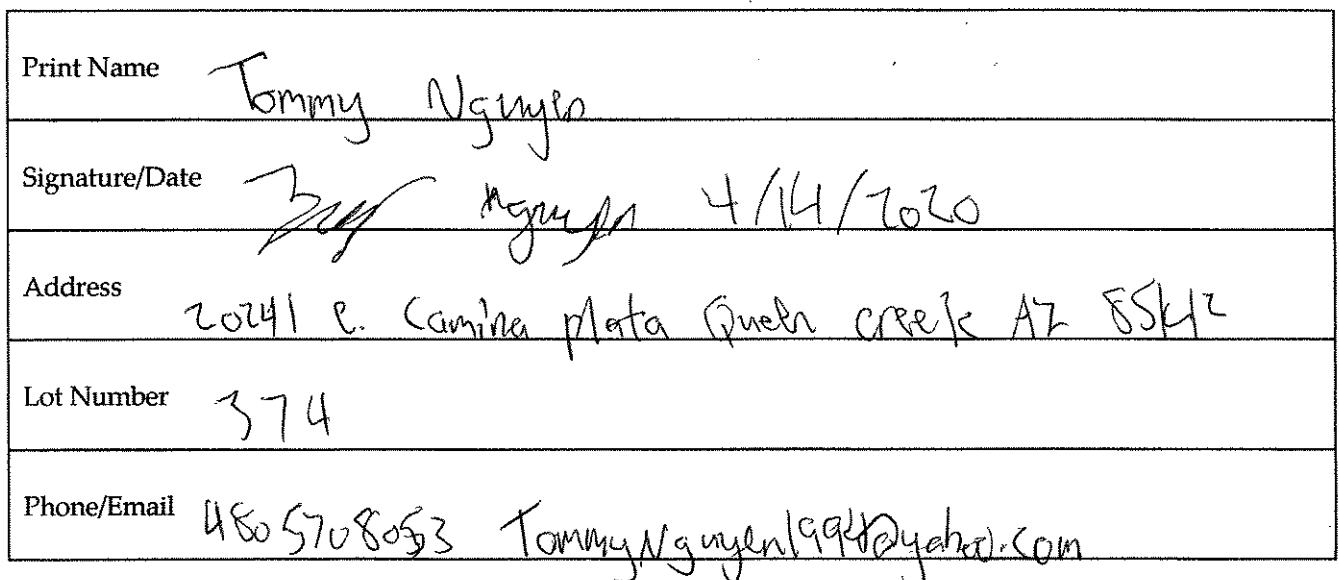 Print Name Tommy Nguyen
Signature/Date Nguyen 4/14/2020
Address 20241 e. Camina plata Queen creek AZ 85142
Lot Number 374
Phone/Email 4805708053 TommyNguyen1994@yahoo.com